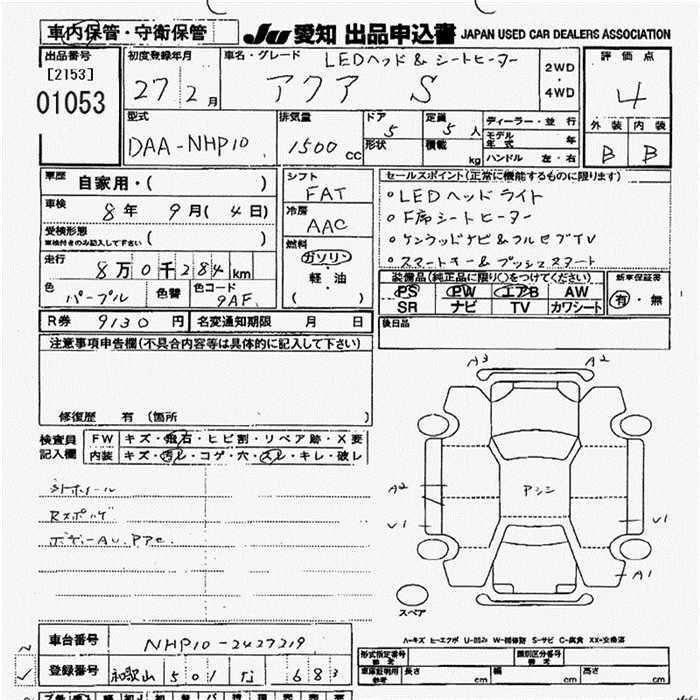 車内保管・守衛保管
JU 愛知 出品申込書 JAPAN USED CAR DEALERS ASSOCIATION
出品番号
[2153]
01053
初度登録年月
27 2月
車名・グレード LEDヘッド & シートヒーター
アクア S
2WD
・
4WD
評価点
4
外装 内装
B B
型式
DAA-NHP10
排気量
1500 cc
ドア 5
形状
定員 5人
積載 kg
ディーラー・並行
モデル年式 年
ハンドル 左・右
車歴 自家用・( )
車検 8年 9月(4日)
受検形態
車検付きのみ記入して下さい ( )
走行 8万0千284km
色 パープル 色替 色コード 9AF
シフト
FAT
冷房
AAC
燃料
ガソリン
・
軽・油
( )
セールスポイント(正常に機能するものに限ります)
・LEDヘッドライト
・F席シートヒーター
・ケンウッドナビ&フルセグTV
・スマートキー&プッシュスタート
装備品(純正品に限り○をつけてください)
PS PW エアB AW
SR ナビ TV カワシート
新車保証書
有・無
R券 9130円 名変通知期限 月 日
後日品
注意事項申告欄(不具合内容等は具体的に記入して下さい)
修復歴 有(箇所 )
検査員
記入欄
FW キズ・飛石・ヒビ割・リペア跡・X要
内装 キズ・汚レ・コゲ・穴・スレ・キレ・破レ
Rスポイラ
A3 A2
A2
V1 V1
A1
スペア
A-キズ E-エクボ U-凹ミ W-補修跡 S-サビ C-腐食 XX-交換済
車台番号 NHP10-2427219
登録番号 和歌山 501 な 683
形式指定番号
参考
類別区分番号
参考
車庫証明用
参考
長さ cm 幅 cm 高さ cm